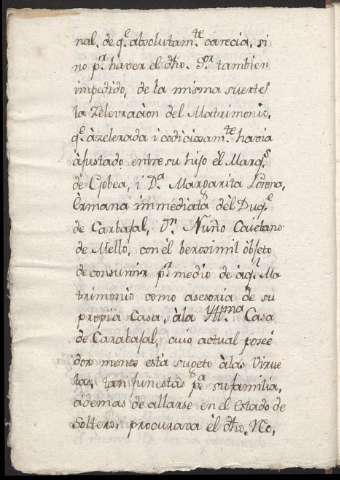 nal, de q.e absolutam.te carecia, si
no p.r haver el dho. S.or tambien
impedido, de la misma suerte
la Zelevraàon del Matrimonio,
q.e àzelerada i codiciosam.te havia
àjustado entre su hijo el Marq.s
de Gobea, i D.a Margarita Lorena,
Ermana immediata del Duq.e
de Carbajal, D.n Nuño Caietano
de Mello, con el berosimil objeto
de consumir p.r medio de aq.l Ma
trimonio como asesoria de su
propia Casa, àla Yll.ma Casa
de Carabajal, cuio actual posee
dor menos està sugeto àlas Virue
las, tan funestas p.a su familia,
ademas de allarse en el Estado de
Soltero; procurava èl dho. No,